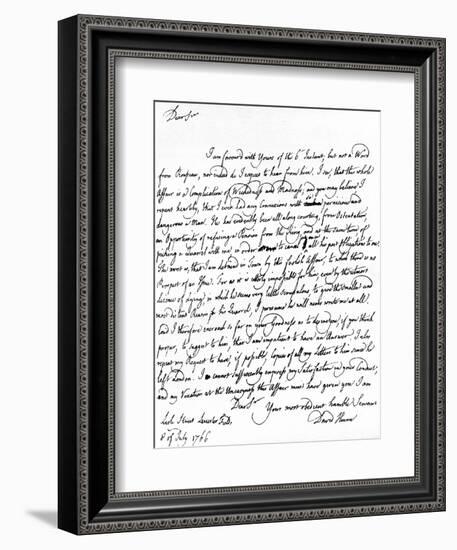 Dear Sir
I am favoured with Yours of the 6th Instant; but not a Word
from Rousseau, nor indeed do I expect to hear from him. I see, that this whole
Affair is a Complication of Wickedness and Madness; and you may believe, I
repent heartily, that I ever had any Connexions with so pernicious and
dangerous a Man. He has evidently been all along courting, from Ostentation,
an Opportunity of refusing a Pension from the King, and at the same time of
picking a Quarrel with me, in order to cancel all his past Obligations to me.
The worst is, that I am detained in Town by this foolish Affair, to which there is no
Prospect of an Issue. For as it is utterly impossible for him, even by the utmost
Licence of lying, in which he seems very little scrupulous, to give the smallest and
most distant Reason for his Quarrel, I presume he will never write me at all.
Coud I therefore encroach so far on your Goodness as to desire you, if you think
proper, to suggest to him, that I am impatient to have an Answer. I also
repeat my Request to have, if possible, Copies of all my Letters to him since he
left London. I cannot sufficiently express my Satisfaction in your Conduct;
and my Vexation at the this Affair must have given you I am
Dear Sir
Your most obedient humble Servant
Lisle Street Leicester Fields, David Hume
8 of July 1766